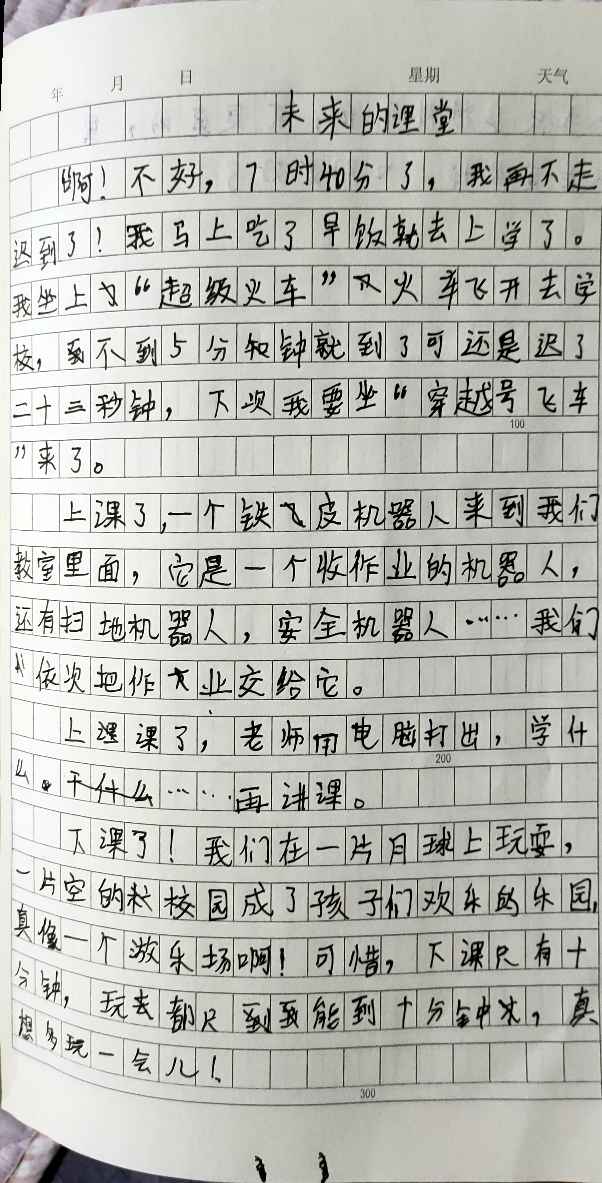 年 月 日 星期 天气
未来的课堂
啊！不好，7时40分了，我再不走
迟到了！我马上吃了早饭就去上学了。
我坐上“超级火车”火车飞开去学
校，不到5分钟就到了可还是迟了
二十三秒钟，下次我要坐“穿越号飞车
100
”来了。
上课了，一个铁皮机器人来到我们
教室里面，它是一个收作业的机器人，
还有扫地机器人，安全机器人……我们
依次把作业交给它。
上课了，老师用电脑打出，学什
200
么。干什么……再讲课。
下课了！我们在一片月球上玩耍，
一片空的校园成了孩子们欢乐的乐园，
真像一个游乐场啊！可惜，下课只有十
分钟，玩去都只能到十分钟，真
想多玩一会儿！
300